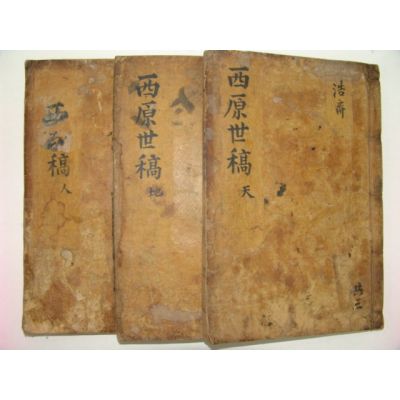 西原世稿 天
浩齋
共三
西原世稿 地
西原世稿 人